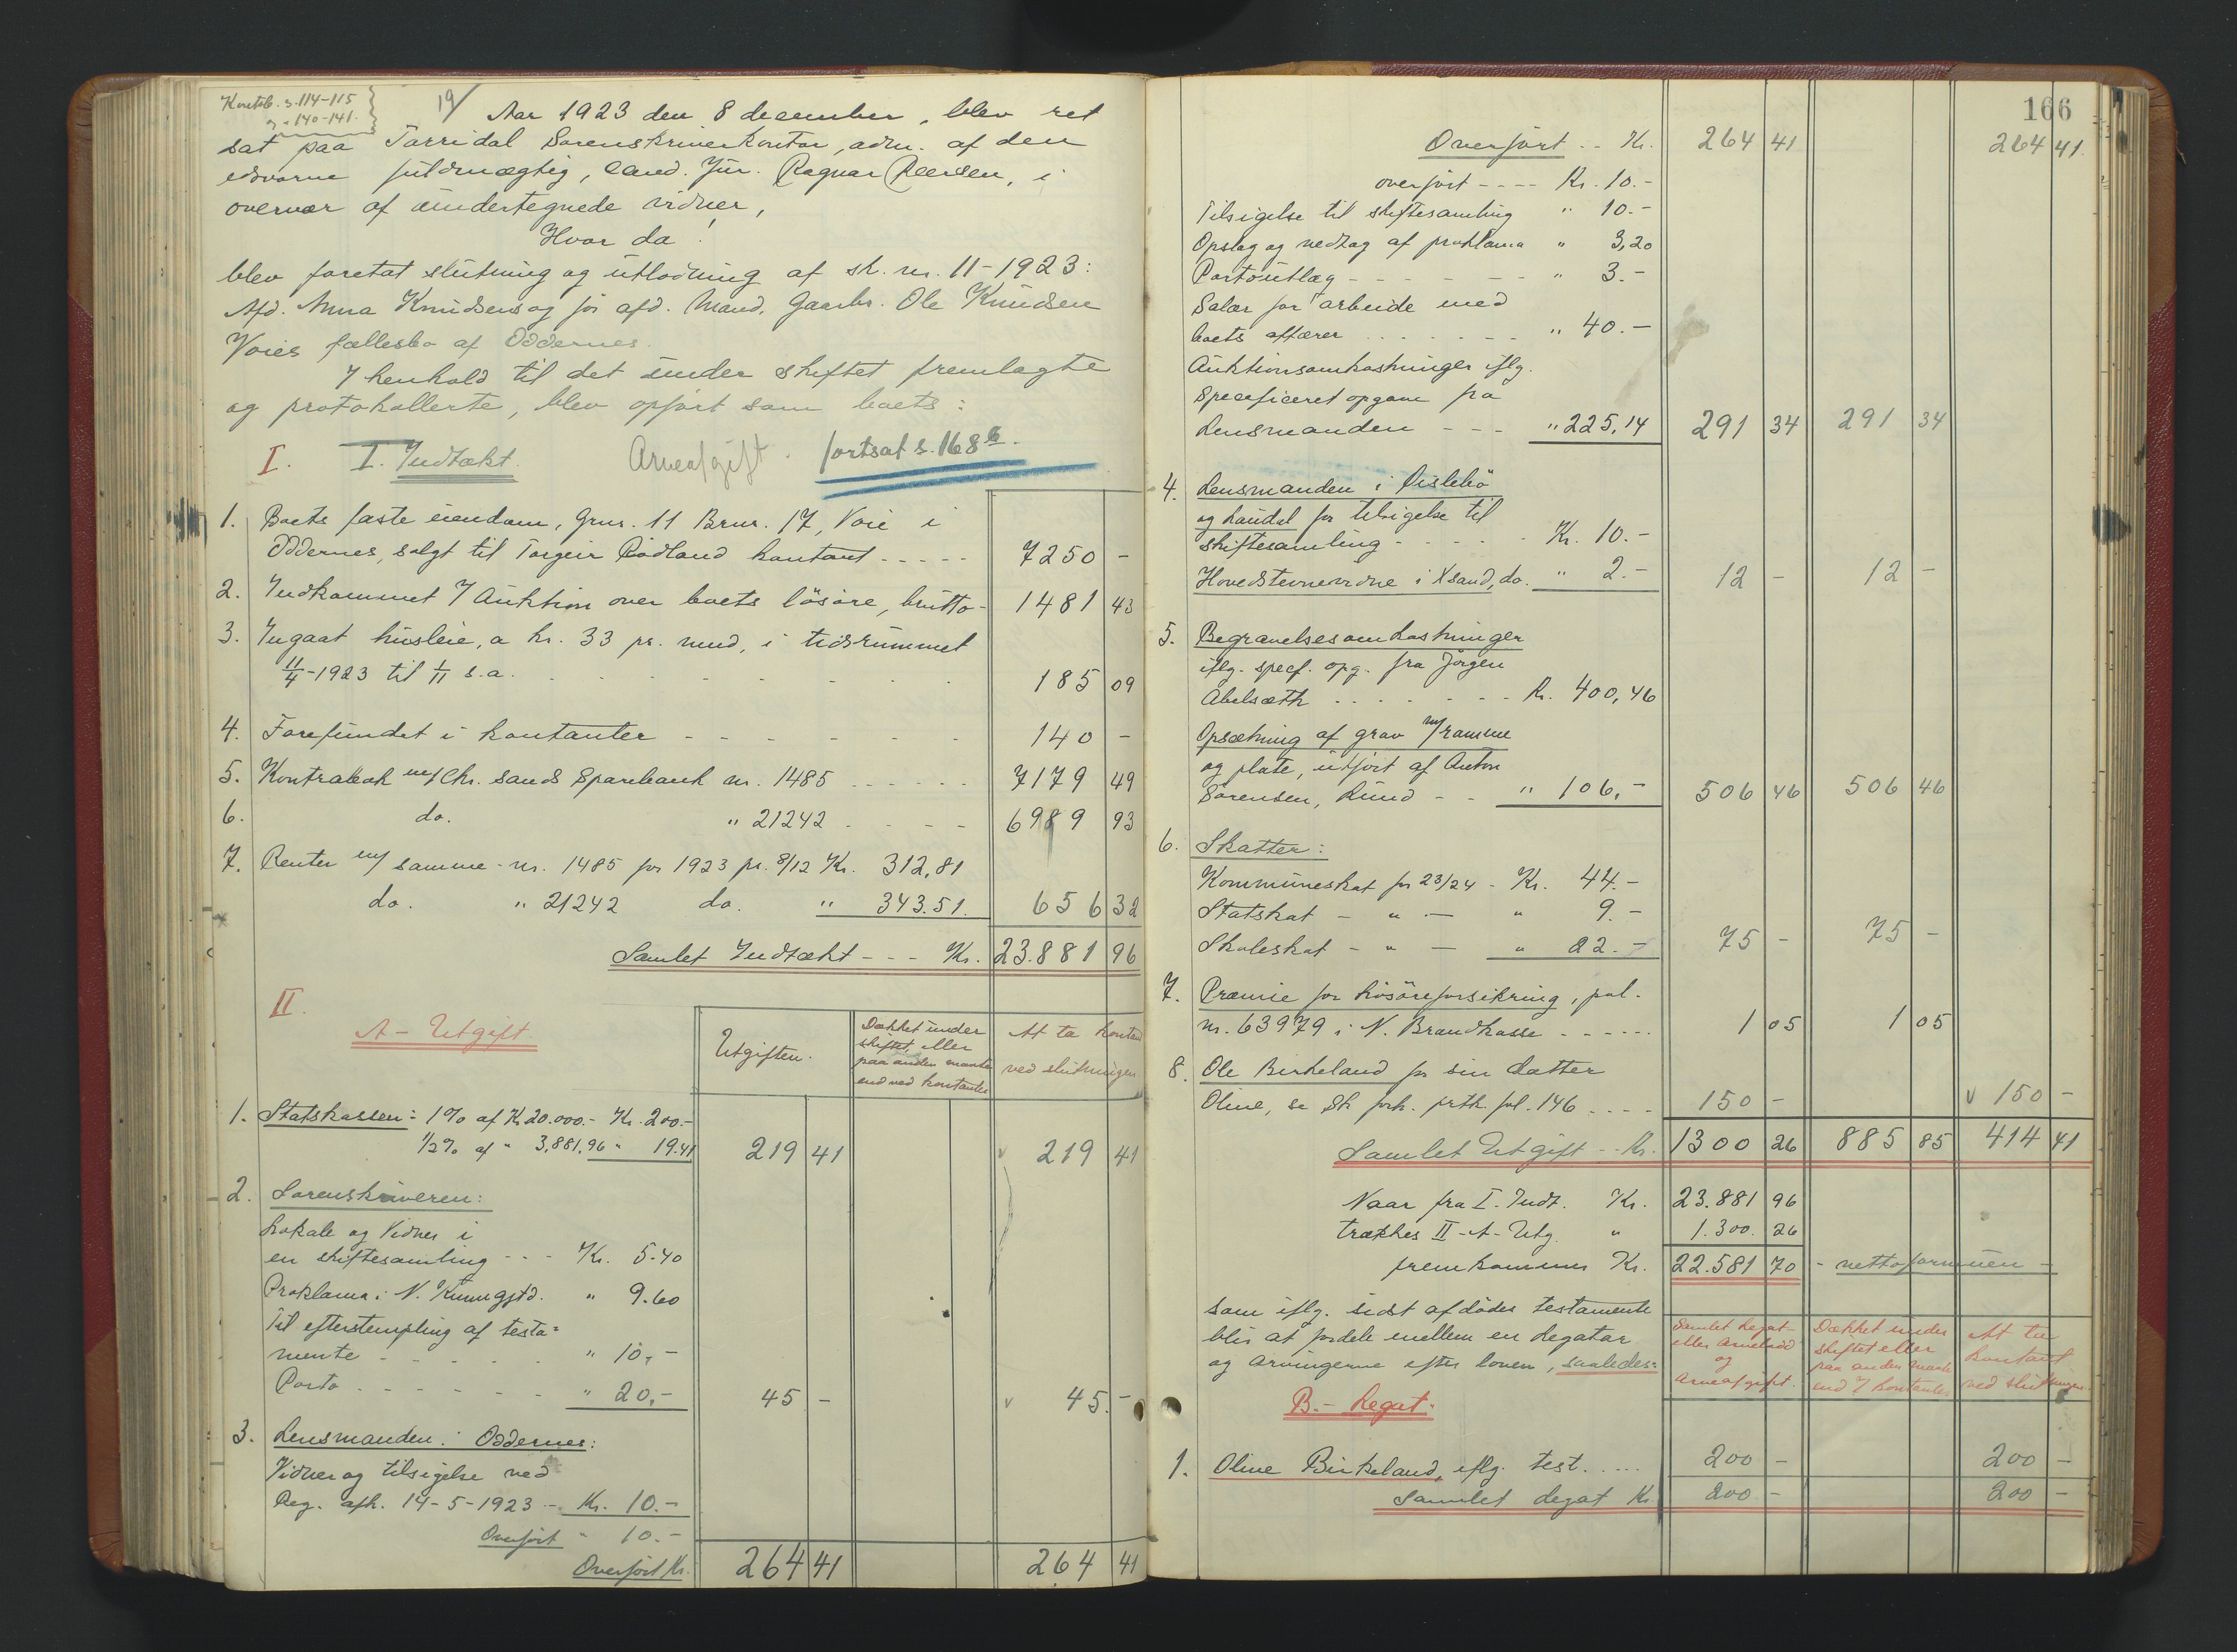 Kontrb. s. 114-115
" - 140-141.
19/ Aar 1923 den 8 december, blev ret
sat paa Torridal Sorenskriverkontor, adm. af den
edsvorne fuldmægtig, cand. jur. Ragnar Reersen, i
overvær af undertegnede vidner,
Hvor da!
blev foretat slutning og utlodning af sk. nr. 11-1923:
Afd. Anna Knudsens og før afd. Mand, Gaarbr. Ole Knudsen
Voies fællesbo af Oddernes.
I henhold til det under skiftet fremlagte
og protokollerte, blev opført som boets:
I. I. Indtækt. Arveafgift. fortsat s. 168 b.
1. Boets faste eiendom, Gnr. 11 Bnr. 17, Voie i
Oddernes, solgt til Torgeir Rødland kontant ----- 7250 -
2. Indkommet v/ Auktion over boets løsøre, brutto- 1481 43
3. Ingaat husleie, a kr. 33 pr. mnd, i tidsrummet
11/4-1923 til 1/11 s.a. . . . . . 185 09
4. Forefundet i kontanter - - - - - - 140 -
5. Kontrabok m/ Chr. sands Sparebank nr. 1485 ------ 7179 49
6. do. " 21242 - - - - 6989 93
7. Renter m/ samme - nr. 1485 for 1923 pr. 8/12 Kr. 312,81
do. " 21242 do. " 343.51. 656 32
Samlet Indtækt --- Kr. 23.881 96
II.
A - Utgift.
Utgiften.
Dækket under
skiftet, eller
paa anden maate
end ved kontanter
At ta kontant
ved slutningen
1. Statskassen: 1% af Kr 20.000.- Kr. 200.-
1/2% af " 3,881,96 " 19.41 219 41 v 219 41
2. Sorenskriveren:
Lokale og Vidner i
en skiftesamling --- Kr. 5.40
Proklama i N. Kunngjtd. " 9.60
Til efterstempling af testa=
mente - - - - - " 10,-
Porto - - - - - - " 20,- 45 - v 45.-
3. Lensmanden i Oddernes:
Vidner og tilsigelse ved
Reg. afh. 14-5-1923 - Kr. 10.-
Overført " 10.-
Overført Kr. 264 41 264 41
166
Overført -- Kr. 264 41 264 41.
overført ---- Kr. 10.-
Tilsigelse til skiftesamling " 10.-
Opslag og nedtag af proklama " 3,20
Portoutlæg - - - - - - - " 3.-
Salær for arbeide med
boets affærer . . . . . " 40.-
Auktionsomkostninger iflg.
Specificeret opgave fra
Lensmanden --- " 225,14 291 34 291 34
4. Lensmanden i Øislebø
og Laudal for tilsigelse til
skiftesamling - - - - - Kr. 10.-
Hovedstevnevidne i Xsand, do. " 2.- 12 - 12 -
5. Begravelsesomkostninger
iflg. specf. opg. fra Jørgen
Abelsæth . . . . . . . Kr. 400,46
Opsætning af grav m/ ramme
og plate, utført af Anton
Sørensen, Lund - - " 106,- 506 46 506 46
6. Skatter:
Kommuneskat for 23/24 - Kr. 44.-
Statskat - " - " 9.-
Skoleskat - " - " 22.- 75 - 75 -
7. Præmie for Løsøreforsikring, pol.
nr. 63979 i N. Brandkasse ------ 1 05 1 05
8. Ole Birkeland for sin datter
Oline, se Sk forh. prtk. fol. 146 .... 150 - v 150 -
Samlet Utgift -- Kr. 1300 26 885 85 414 41
Naar fra I. Indt. Kr. 23.881 96
trækkes II - A - Utg. " 1.300. 26
fremkommer Kr. 22.581 70 - nettoformuen -
som iflg. sidst afdødes testamente
blir at fordele mellem en Legatar
og arvingerne efter loven, saaledes:
Samlet Legat-
eller arvelodd
og
Arveafgift.
Dækket under
skiftet eller
paa anden maate
end v/ kontanter
At ta
kontant
ved slutningen.
B. - Legat:
1. Oline Birkeland, iflg. test. .... 200 - 200 -
Samlet Legat Kr. 200 - 200 -